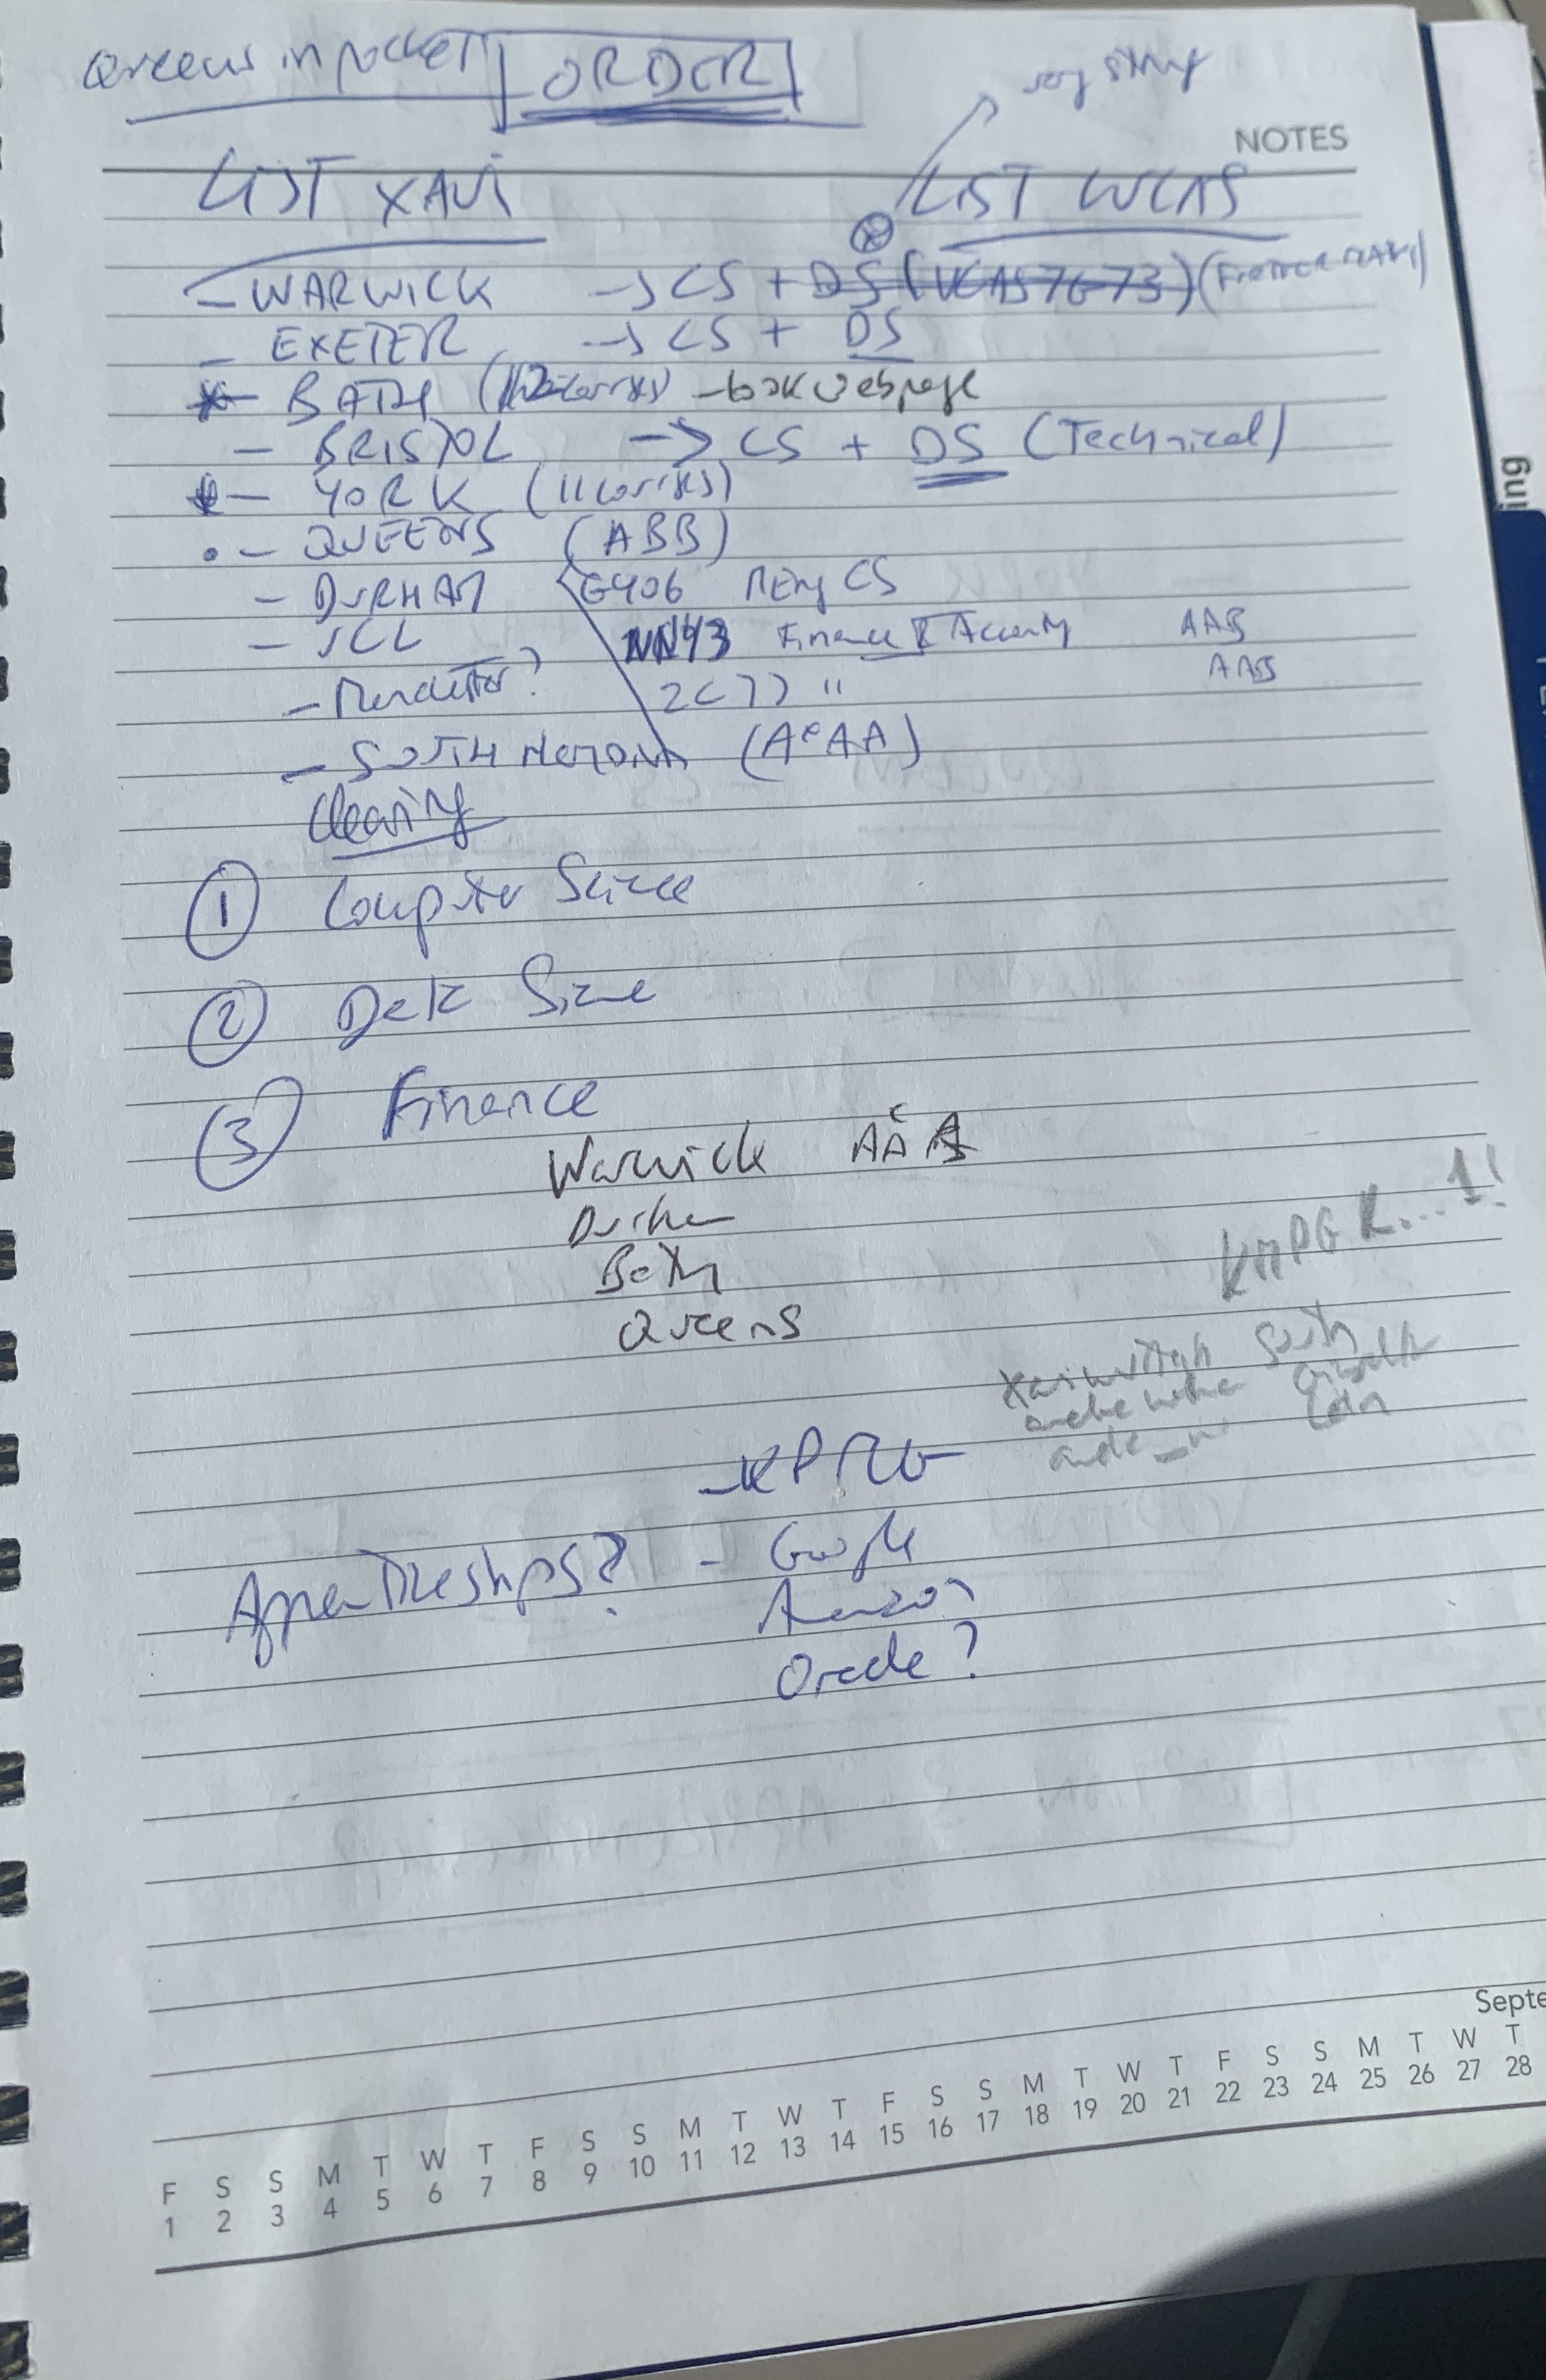 Queens in pocket ORDER
very strong
NOTES
LIST XAVI LIST UCAS
- WARWICK → CS + DS (UCAS 7G73)
- EXETER → CS + DS
- BATH - book webpage
- BRISTOL → CS + DS (Technical)
- YORK
- QUEENS (ABB)
- DURHAM G406 MEng CS
- UCL NN43 Finance & Accounting AAB
- Manchester? AAB
- SOUTHAMPTON (A*AA)
Clearing
① Computer Science
② Data Science
③ Finance
Warwick
Durham
Bath
Queens
KMPGK...1!
South
- KPMG
Apprenticeships? - Google
Amazon
Oracle?
ing
Septe
F S S M T W T F S S M T W T F S S M T W T F S S M T W T
1 2 3 4 5 6 7 8 9 10 11 12 13 14 15 16 17 18 19 20 21 22 23 24 25 26 27 28